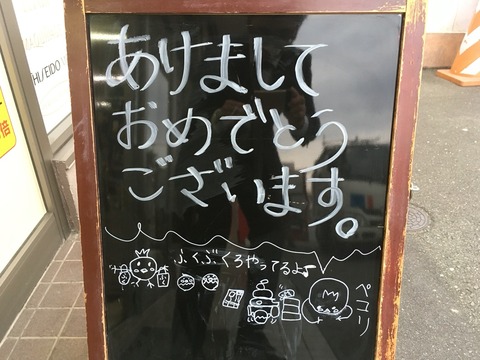 あけまして
おめでとう
ございます。
ふくぶくろやってるよ♪
ペコリ
SHISEIDO
倍